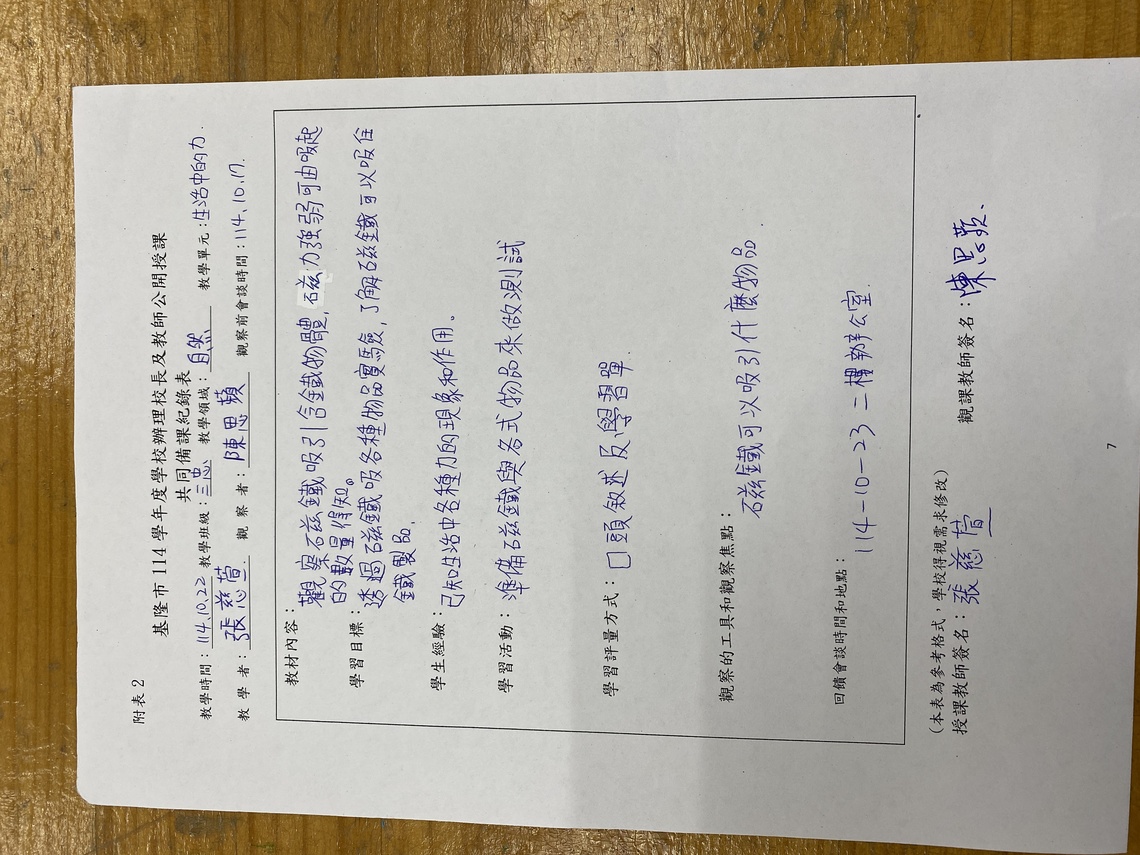 附表2
基隆市114學年度學校辦理校長及教師公開授課
共同備課紀錄表
教學時間：114.10.22 教學班級：三忠 教學領域：自然 教學單元：生活中的力.
教 學 者：張慈萱. 觀 察 者：陳思蘋 觀察前會談時間：114.10.17.
教材內容：
觀察石磁鐵吸引含鐵物體,磁力強弱可由吸起
的數量得知。
學習目標：透過磁鐵吸各種物品實驗,了解磁鐵可以吸住
鐵製品.
學生經驗：已知生活中各種力的現象和作用。
學習活動：準備磁鐵與各式物品來做測試
學習評量方式：口頭敘述及學習單.
觀察的工具和觀察焦點：
磁鐵可以吸引什麼物品.
回饋會談時間和地點：
114-10-23 二樓辦公室.
(本表為參考格式，學校得視需求修改)
授課教師簽名：張慈萱 觀課教師簽名：陳思蘋.
7